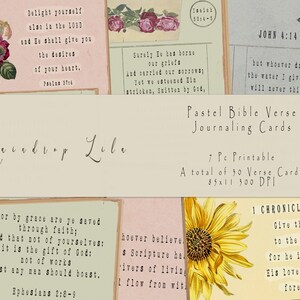 Delight yourself
also in the LORD
and He shall give you
the desires
of your heart,
Psalm 37:4
Isaiah
53:4-5
Surely He has borne
our griefs
and carried our sorrows;
Yet we esteemed Him
stricken, smitten by God,
JOHN 4:14
but whoever dr
the water I giv
will never thir
Pastel Bible Verse
Journaling Cards
7 Pc Printable
A total of 30 Verse Cards
85x11 300 DPI
raindrop Lila
or by grace are ye saved
through faith;
and that not of yourselves:
is the gift of God:
not of works
est any man should boast,
Ephesians 2:8-9
however believes
s Scripture ha
ivers of living
l flow from wit
1 CHRONICL
Give th
to the
for he
His lov
fore